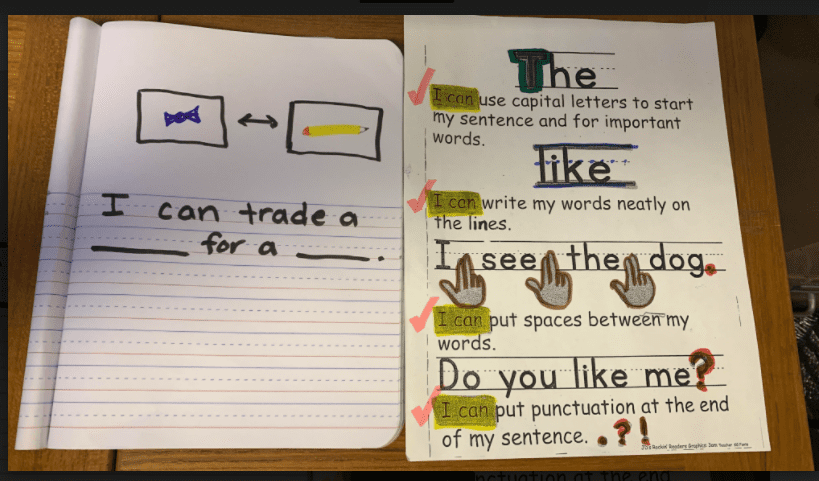 I can trade a
____ for a ____.
The
I can use capital letters to start
my sentence and for important
words.
like
I can write my words neatly on
the lines.
I see the dog.
I can put spaces between my
words.
Do you like me?
I can put punctuation at the end
of my sentence. . ? !